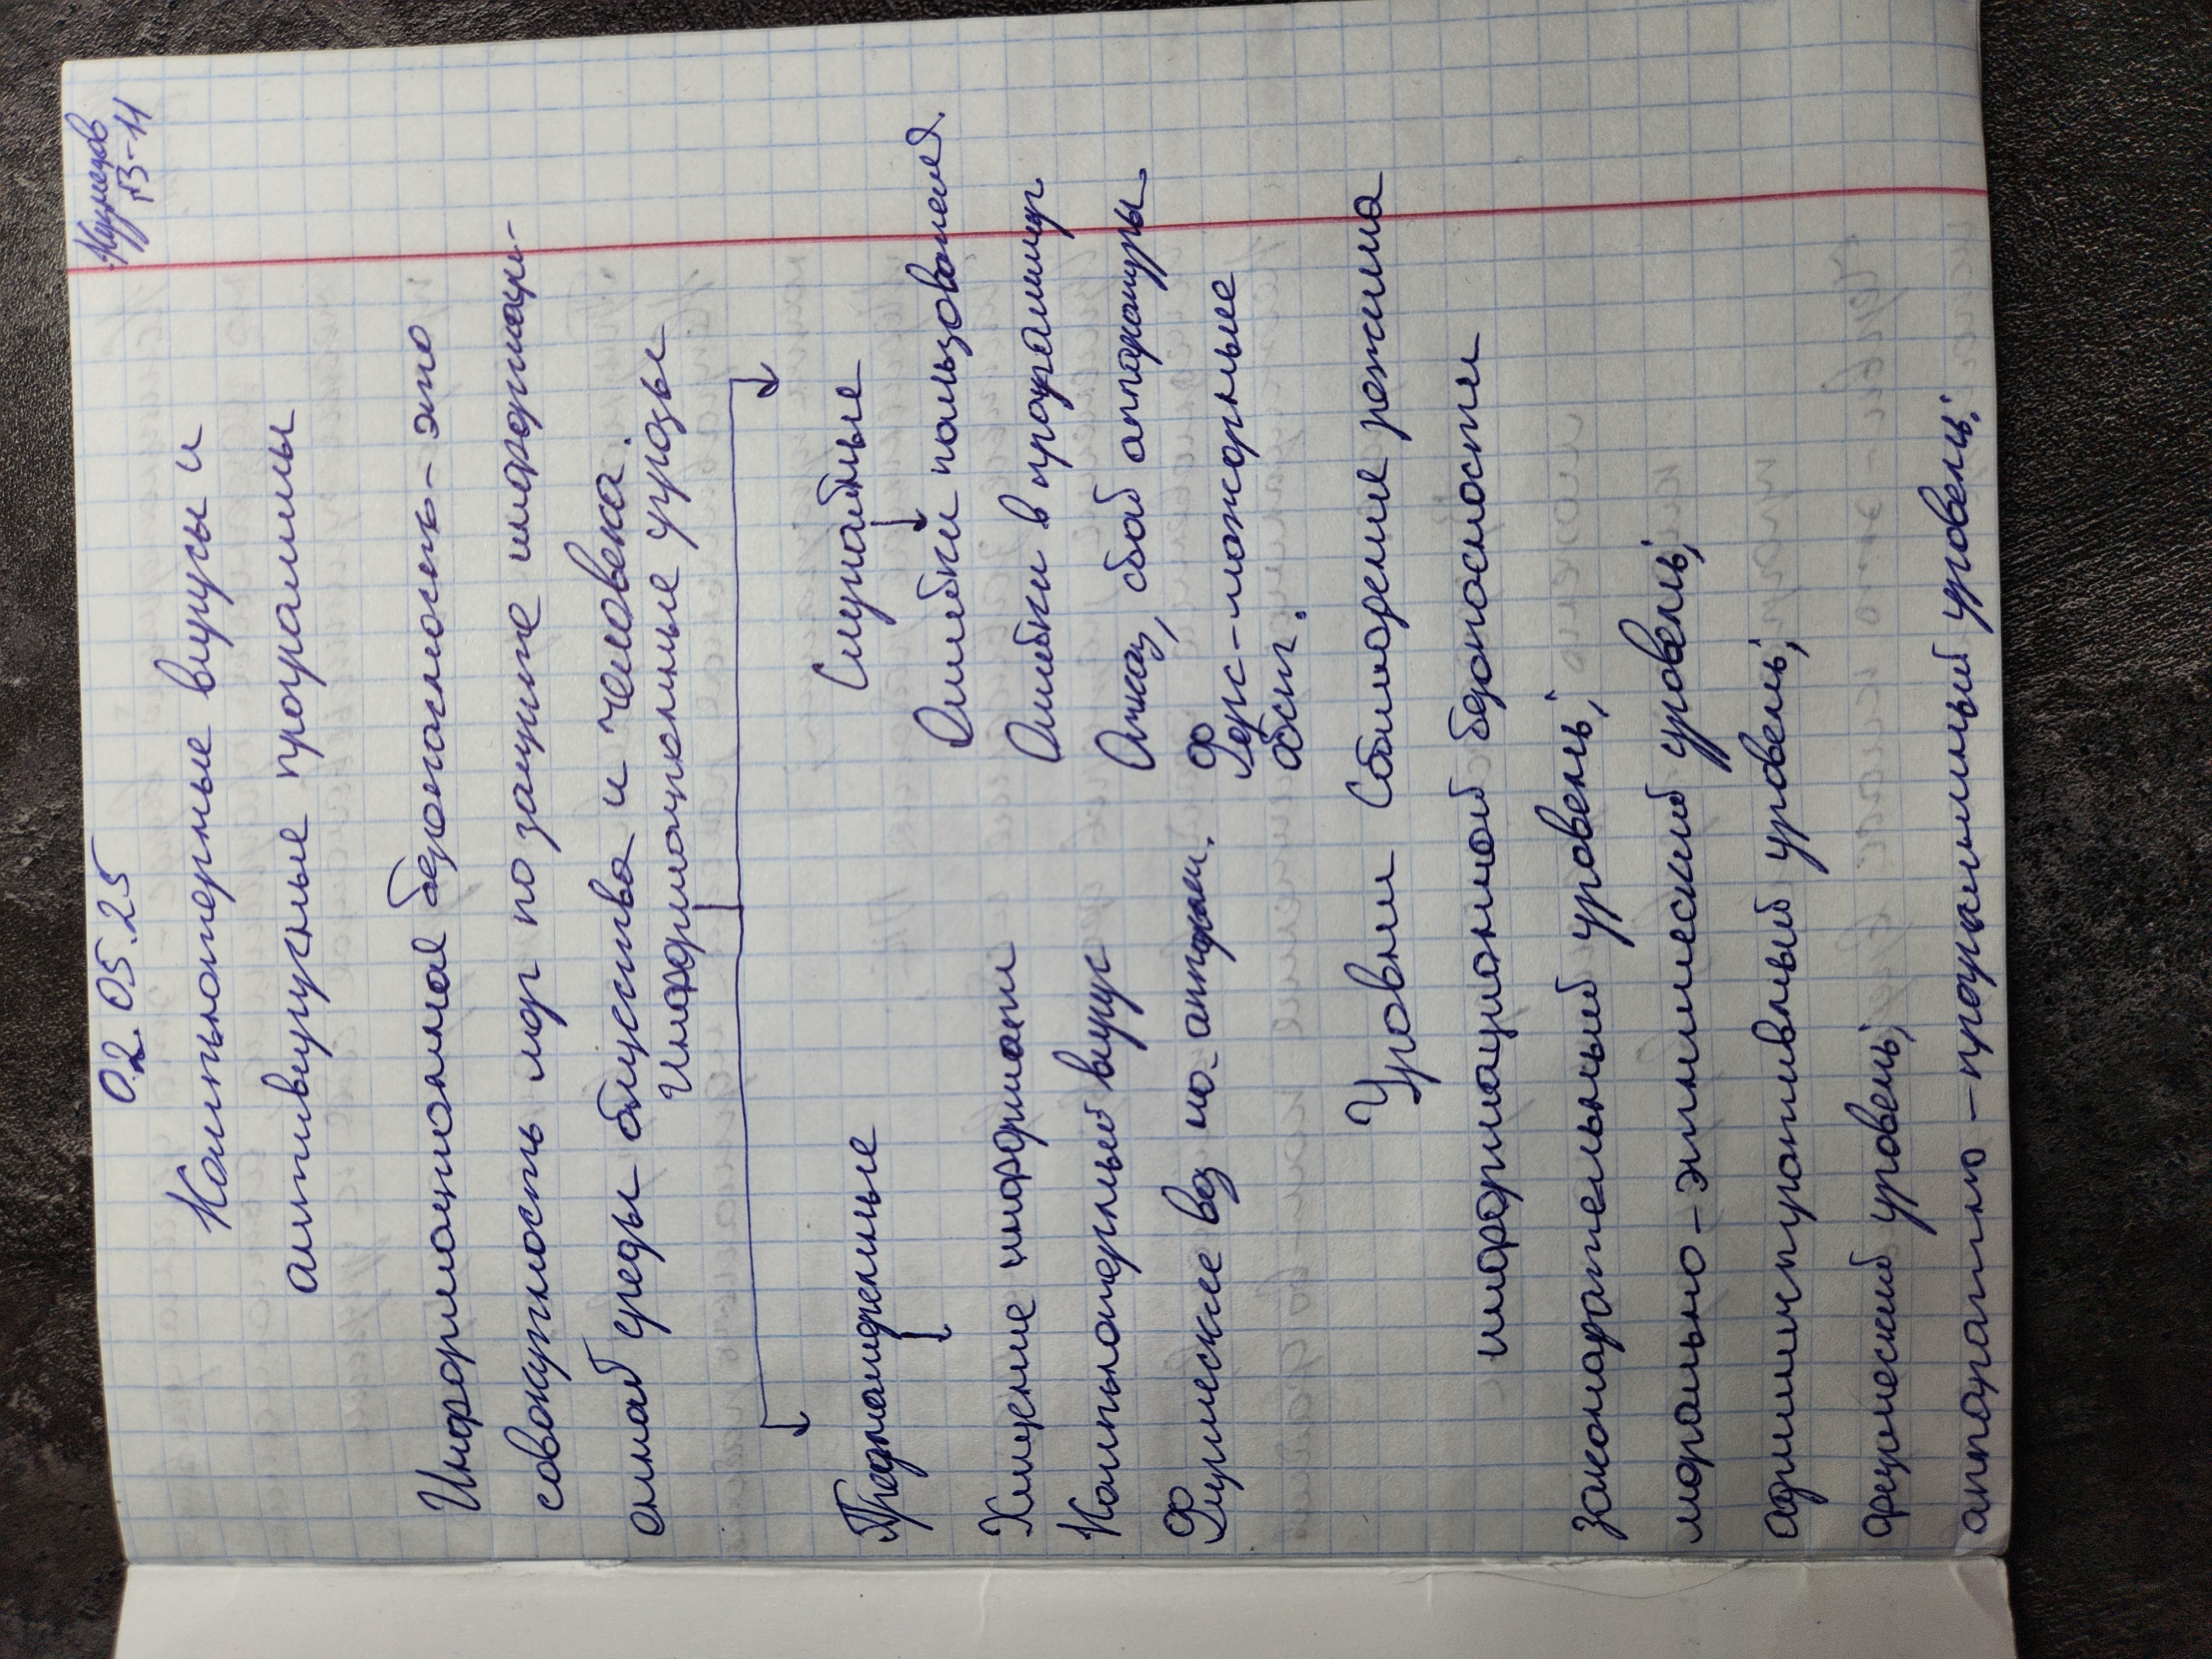 02.05.25
ПЗ-11
Компьютерные вирусы и
антивирусные программы
Информационная безопасность - это
совокупность мер по защите информаци-
онной среды общества и человека.
Информационные угрозы
Преднамеренные
Случайные
Хищение информации
Ошибки пользователя
Компьютерный вирус
Ошибки в программир.
Физическое воз на аппарат.
Отказ, сбой аппаратуры
Форс-мажорные
обст.
Уровни Соблюдение режима
информационной безопасности
законодательный уровень;
морально-этический уровень;
административный уровень;
физический уровень;
аппаратно-программный уровень.